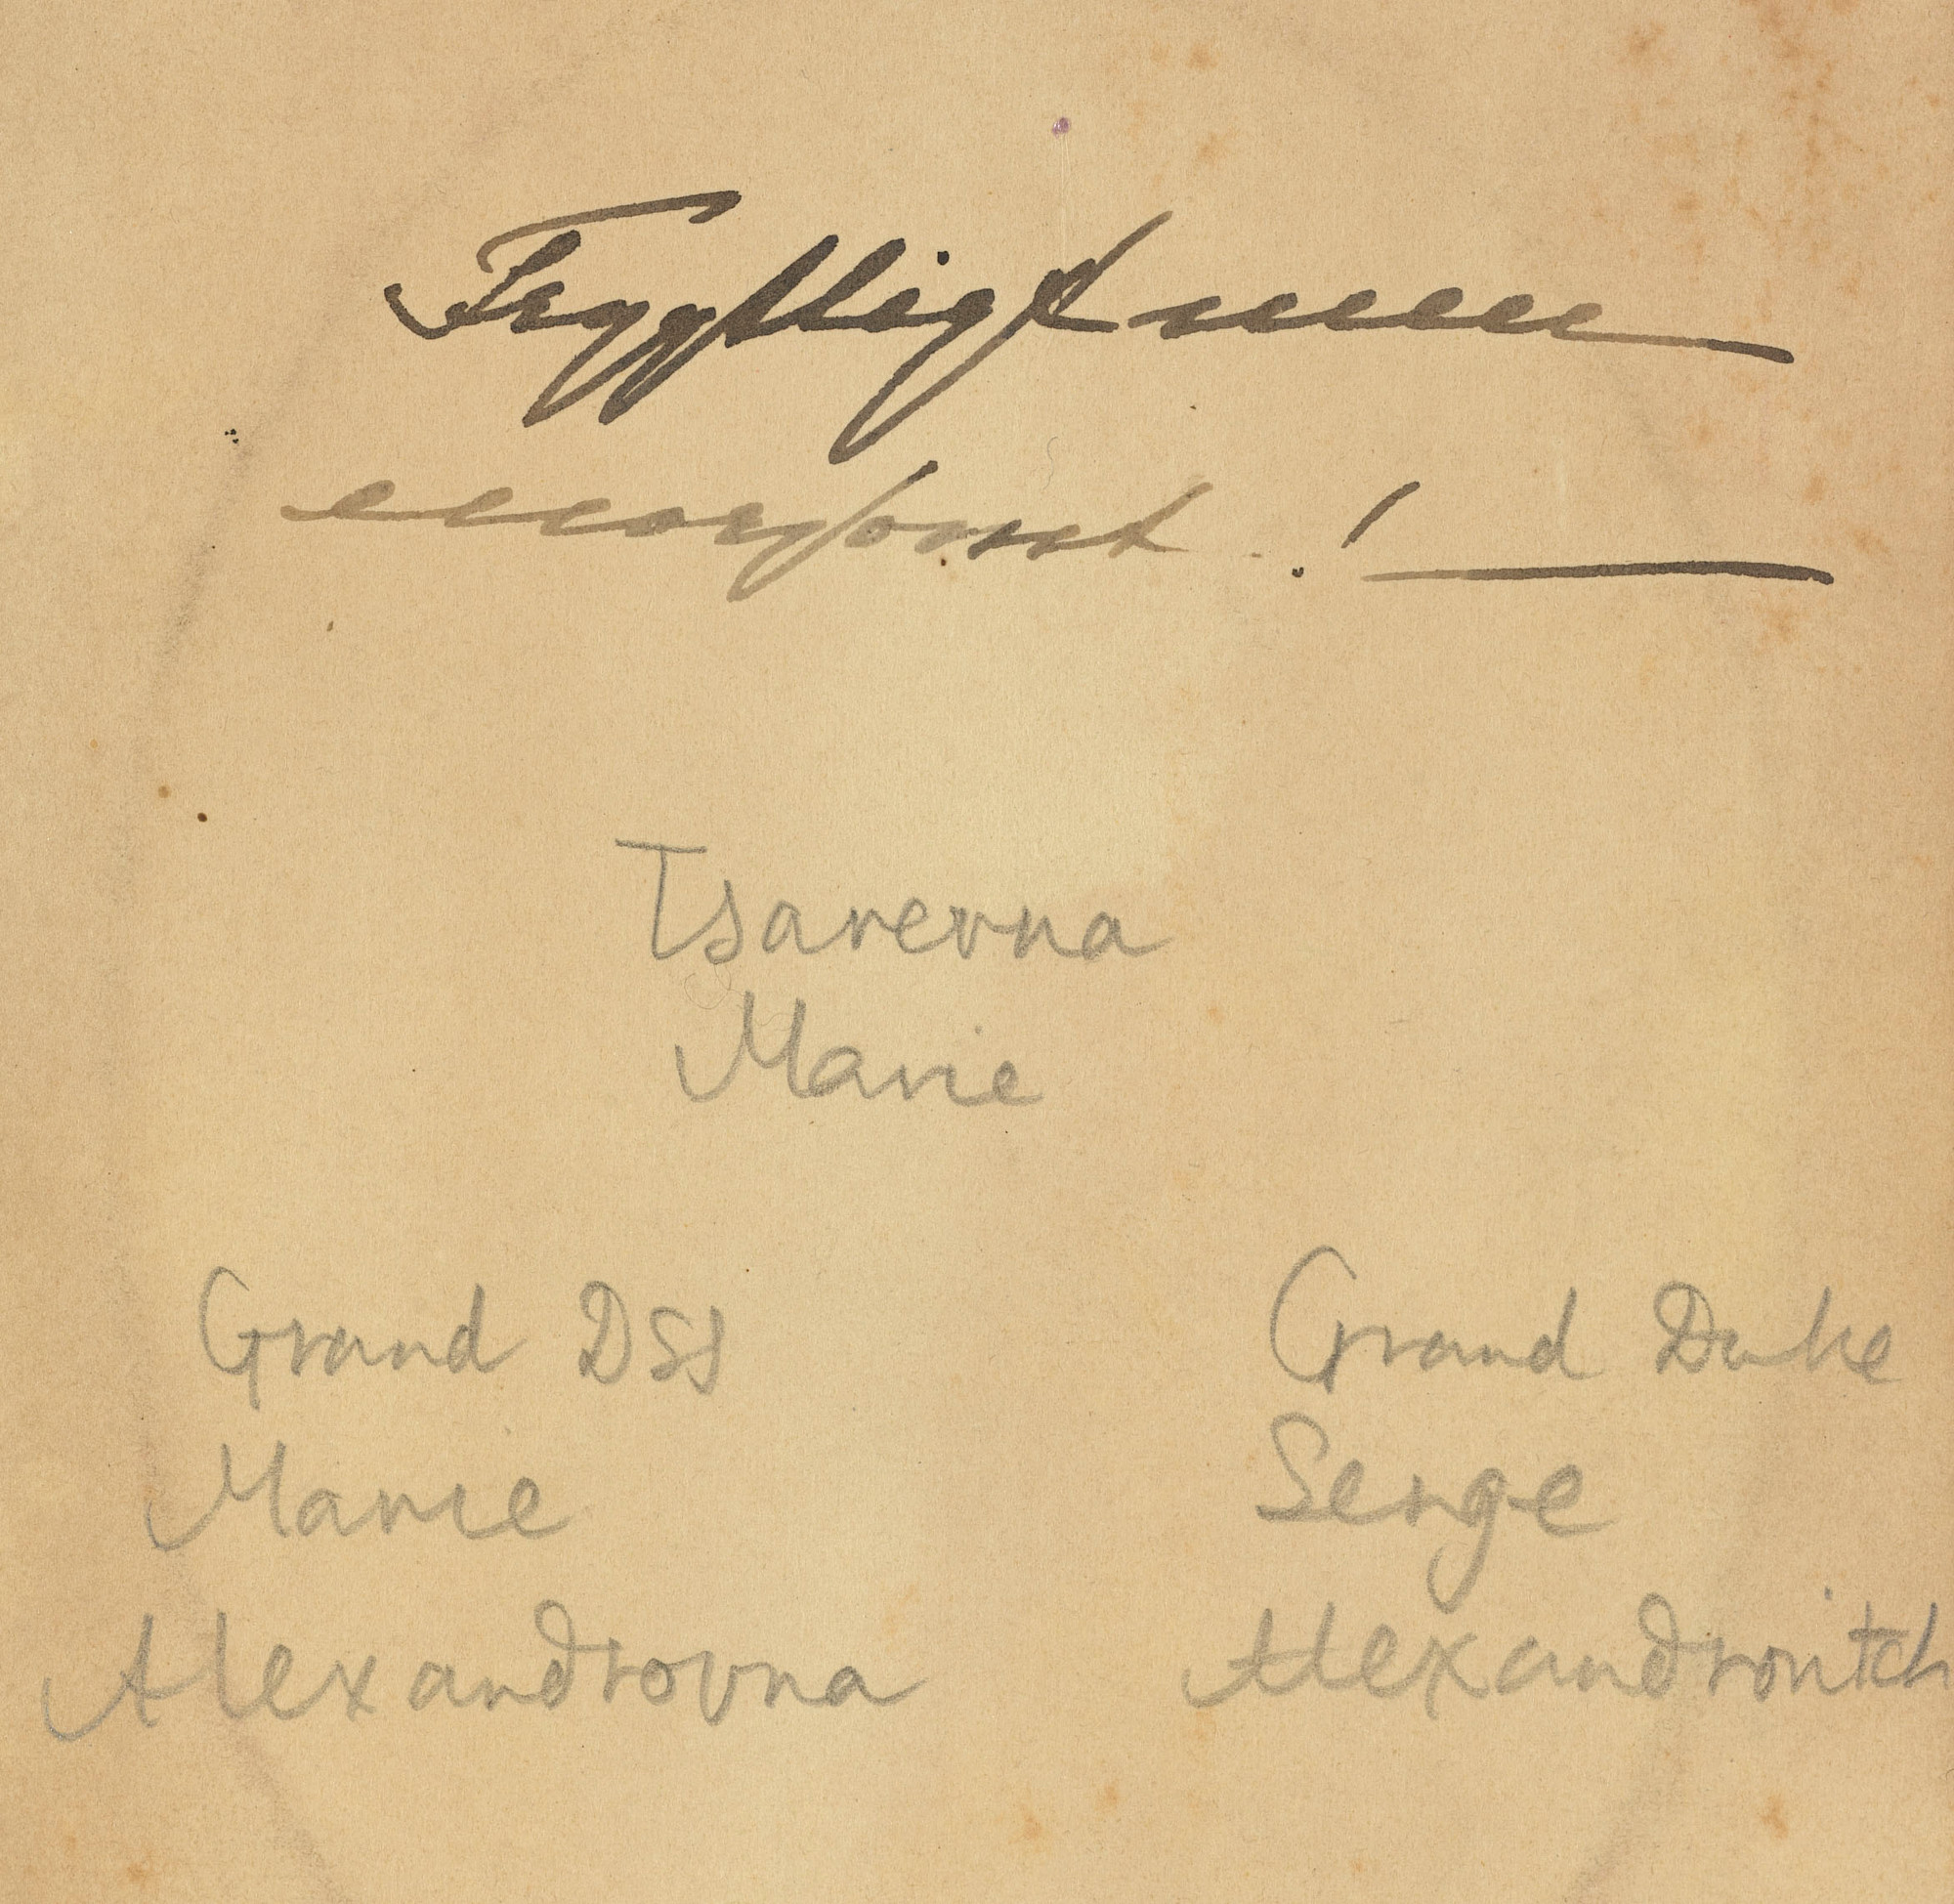 Frygtligt men
morsomt !
Tsarevna
Marie
Grand Dss
Marie
Alexandrovna
Grand Duke
Serge
Alexandrovitch